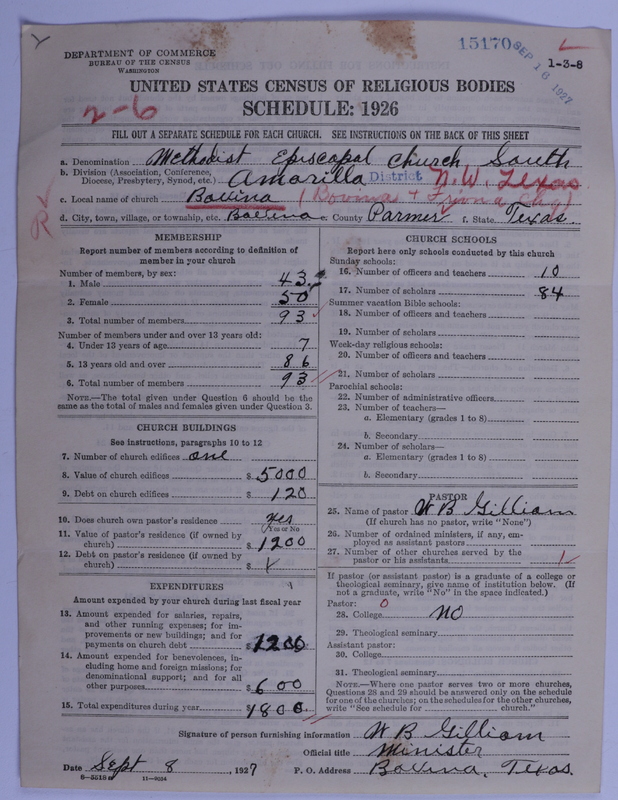 15170
SEP 16 1927
DEPARTMENT OF COMMERCE
BUREAU OF THE CENSUS
WASHINGTON
1-3-8
UNITED STATES CENSUS OF RELIGIOUS BODIES
SCHEDULE: 1926
2-6
FILL OUT A SEPARATE SCHEDULE FOR EACH CHURCH. SEE INSTRUCTIONS ON THE BACK OF THIS SHEET
a. Denomination Methodist Episcopal Church South
b. Division (Association, Conference, Diocese, Presbytery, Synod, etc.) Amarilla District N.W. Texas
c. Local name of church Bovina (Bovina + Chg)
d. City, town, village, or township, etc. Bovina e. County Parmer f. State Texas.
MEMBERSHIP
Report number of members according to definition of
member in your church
Number of members, by sex:
1. Male 43
2. Female 50
3. Total number of members 93
Number of members under and over 13 years old:
4. Under 13 years of age 7
5. 13 years old and over 86
6. Total number of members 93
NOTE.—The total given under Question 6 should be
same as the total of males and females given under Question 3.
CHURCH BUILDINGS
See instructions, paragraphs 10 to 12
7. Number of church edifices one
8. Value of church edifices $ 5000
9. Debt on church edifices $ 120
10. Does church own pastor's residence yes
Yes or No
11. Value of pastor's residence (if owned by
church) $ 1200
12. Debt on pastor's residence (if owned by
church) $
EXPENDITURES
Amount expended by your church during last fiscal year
13. Amount expended for salaries, repairs,
and other running expenses; for im-
provements or new buildings; and for
payments on church debt $ 1200
14. Amount expended for benevolences, in-
cluding home and foreign missions; for
denominational support; and for all
other purposes $ 600
15. Total expenditures during year $ 1800
CHURCH SCHOOLS
Report here only schools conducted by this church
Sunday schools:
16. Number of officers and teachers 10
17. Number of scholars 84
Summer vacation Bible schools:
18. Number of officers and teachers
19. Number of scholars
Week-day religious schools:
20. Number of officers and teachers
21. Number of scholars
Parochial schools:
22. Number of administrative officers
23. Number of teachers—
a. Elementary (grades 1 to 8)
b. Secondary
24. Number of scholars—
a. Elementary (grades 1 to 8)
b. Secondary
PASTOR
25. Name of pastor W B Gilliam
(If church has no pastor, write "None")
26. Number of ordained ministers, if any, em-
ployed as assistant pastors
27. Number of other churches served by the
pastor or his assistants 1
If pastor (or assistant pastor) is a graduate of a college or
theological seminary, give name of institution below. (If
not a graduate, write "No" in the space indicated.)
Pastor: 0
28. College NO
29. Theological seminary
Assistant pastor:
30. College
31. Theological seminary
NOTE.—Where one pastor serves two or more churches,
Questions 28 and 29 should be answered only on the schedule
for one of the churches; on the schedules for the other churches,
write "See schedule for church."
Signature of person furnishing information W B Gilliam
Official title Minister
Date Sept 8, 1927 P. O. Address Bovina, Texas.
8-5518a 11-9094